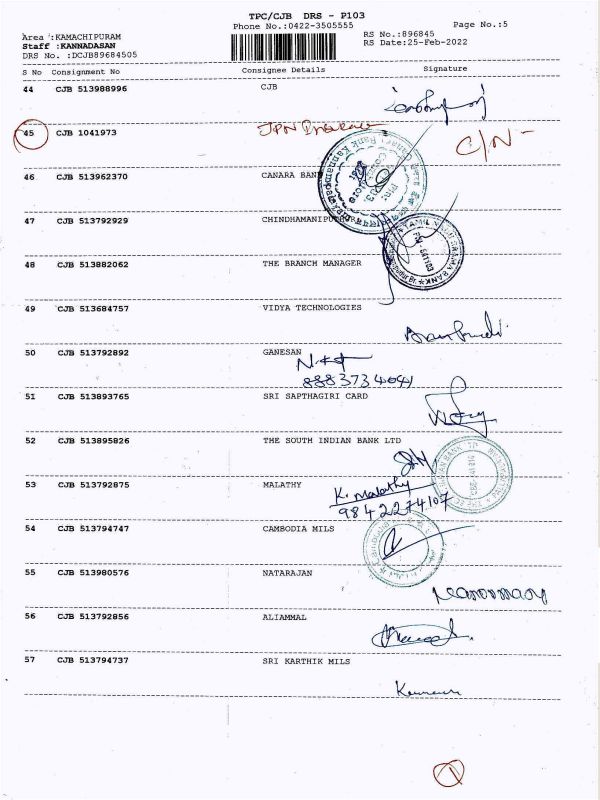 TPC/CJB DRS - P103
Phone No.:0422-3505555
Page No.:5
Area :KAMACHIPURAM
RS No.:896845
Staff :KANNADASAN
RS Date:25-Feb-2022
DRS No. :DCJB89684505
S No Consignment No Consignee Details Signature
44 CJB 513988996 CJB
45 CJB 1041973 C/N -
46 CJB 513962370 CANARA BANK
47 CJB 513792929
48 CJB 513882062 THE BRANCH MANAGER
49 CJB 513684757 VIDYA TECHNOLOGIES
50 CJB 513792892 GANESAN
51 CJB 513893765 SRI SAPTHAGIRI CARD
52 CJB 513895826 THE SOUTH INDIAN BANK LTD
53 CJB 513792875 MALATHY
K. Malathy
9842274107
54 CJB 513794747 CAMBODIA MILS
55 CJB 513980576 NATARAJAN
56 CJB 513792856 ALIAMMAL
57 CJB 513794737 SRI KARTHIK MILS
1